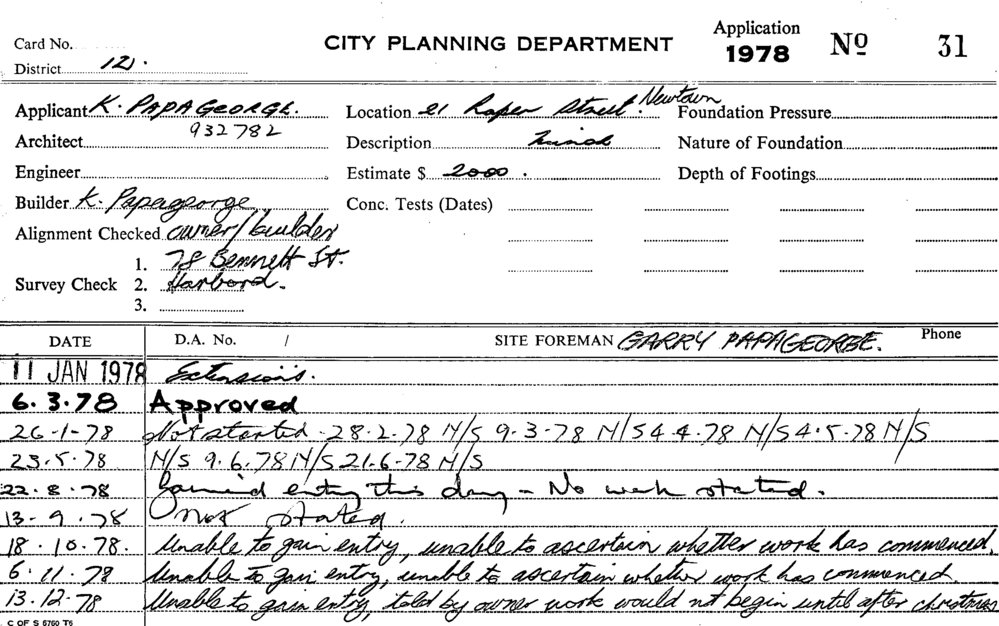 Application
CITY PLANNING DEPARTMENT 1978 Nº 31
Card No.
District 12.
Applicant K. PAPAGEORGE. Location 21 Raper Street. Newtown Foundation Pressure
932782
Architect Description Nature of Foundation
Engineer Estimate $ 2000. Depth of Footings
Builder K. Papageorge Conc. Tests (Dates)
Alignment Checked owner/builder
1. 78 Bennett St.
Survey Check 2. Harbord.
3.
DATE D.A. No. / SITE FOREMAN GARRY PAPAGEORGE. Phone
11 JAN 1978 Extensions.
6.3.78 Approved
26-1-78 Not started 28.2.78 N/S 9-3-78 N/S 4.4.78 N/S 4.5.78 N/S
23.5.78 N/S 9.6.78 N/S 21.6-78 N/S
22.8.78 Gained entry this day - No work started.
13-9.78 Not started.
18.10.78. Unable to gain entry, unable to ascertain whether work has commenced.
6.11.78 Unable to gain entry, unable to ascertain whether work has commenced.
13.12.78 Unable to gain entry, told by owner work would not begin until after christmas
C OF S 5760 T6